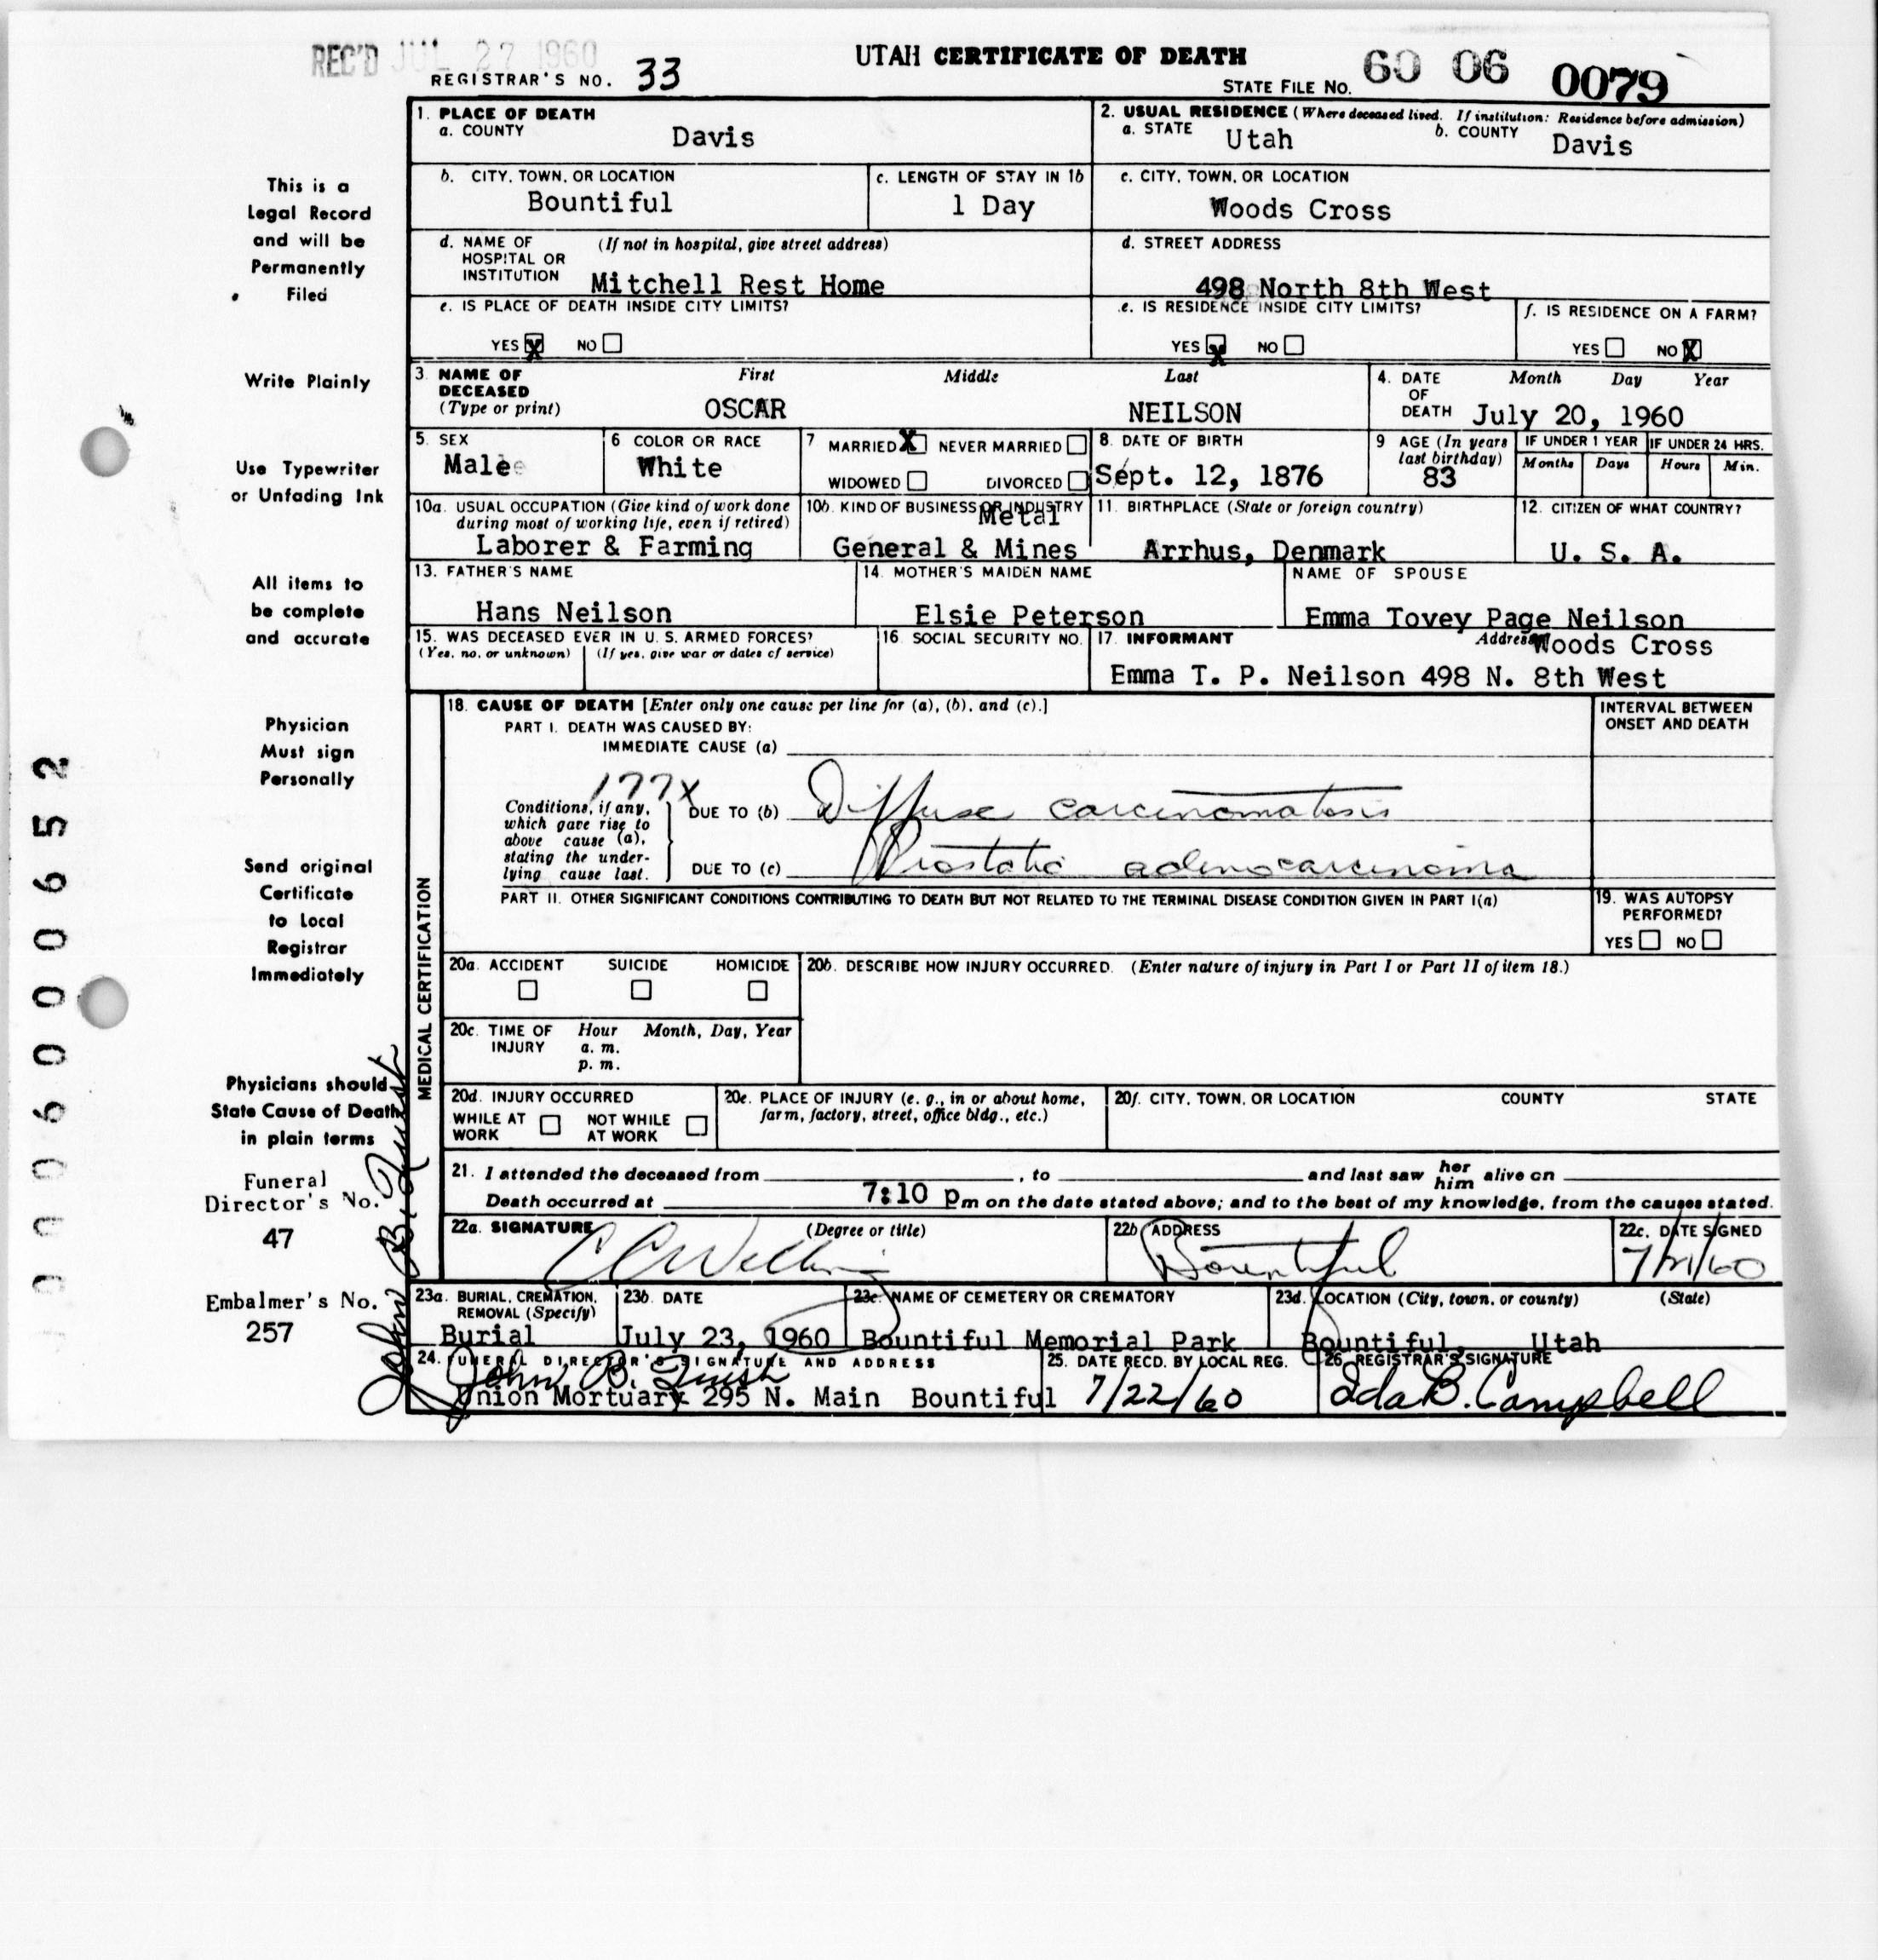 REC'D JUL 27 1960
UTAH CERTIFICATE OF DEATH
REGISTRAR'S NO. 33
STATE FILE NO. 60 06 0079
1. PLACE OF DEATH
a. COUNTY Davis
2. USUAL RESIDENCE (Where deceased lived. If institution: Residence before admission)
a. STATE Utah b. COUNTY Davis
b. CITY, TOWN, OR LOCATION Bountiful
c. LENGTH OF STAY IN 1b 1 Day
c. CITY, TOWN, OR LOCATION Woods Cross
d. NAME OF HOSPITAL OR INSTITUTION (If not in hospital, give street address) Mitchell Rest Home
d. STREET ADDRESS 498 North 8th West
e. IS PLACE OF DEATH INSIDE CITY LIMITS?
YES X NO
e. IS RESIDENCE INSIDE CITY LIMITS?
YES X NO
f. IS RESIDENCE ON A FARM?
YES NO X
3. NAME OF DECEASED (Type or print) First Middle Last
OSCAR NEILSON
4. DATE OF DEATH Month Day Year
July 20, 1960
5. SEX Male
6 COLOR OR RACE White
7 MARRIED X NEVER MARRIED
WIDOWED DIVORCED
8. DATE OF BIRTH Sept. 12, 1876
9 AGE (In years last birthday) 83
IF UNDER 1 YEAR Months Days
IF UNDER 24 HRS. Hours Min.
10a. USUAL OCCUPATION (Give kind of work done during most of working life, even if retired)
Laborer & Farming
10b. KIND OF BUSINESS OR INDUSTRY
Metal
General & Mines
11. BIRTHPLACE (State or foreign country)
Arrhus, Denmark
12. CITIZEN OF WHAT COUNTRY?
U. S. A.
13. FATHER'S NAME
Hans Neilson
14. MOTHER'S MAIDEN NAME
Elsie Peterson
NAME OF SPOUSE
Emma Tovey Page Neilson
15. WAS DECEASED EVER IN U. S. ARMED FORCES?
(Yes, no, or unknown) (If yes, give war or dates of service)
16. SOCIAL SECURITY NO.
17. INFORMANT Address Woods Cross
Emma T. P. Neilson 498 N. 8th West
MEDICAL CERTIFICATION
18. CAUSE OF DEATH [Enter only one cause per line for (a), (b), and (c).]
INTERVAL BETWEEN ONSET AND DEATH
PART I. DEATH WAS CAUSED BY:
IMMEDIATE CAUSE (a)
177X
Conditions, if any, which gave rise to above cause (a), stating the underlying cause last.
DUE TO (b) Diffuse carcinomatosis
DUE TO (c) Prostatic adenocarcinoma
PART II. OTHER SIGNIFICANT CONDITIONS CONTRIBUTING TO DEATH BUT NOT RELATED TO THE TERMINAL DISEASE CONDITION GIVEN IN PART I(a)
19. WAS AUTOPSY PERFORMED?
YES NO
20a. ACCIDENT SUICIDE HOMICIDE
20b. DESCRIBE HOW INJURY OCCURRED. (Enter nature of injury in Part I or Part II of item 18.)
20c. TIME OF INJURY Hour Month, Day, Year
a. m.
p. m.
20d. INJURY OCCURRED
WHILE AT WORK NOT WHILE AT WORK
20e. PLACE OF INJURY (e. g., in or about home, farm, factory, street, office bldg., etc.)
20f. CITY, TOWN, OR LOCATION COUNTY STATE
21. I attended the deceased from , to and last saw her him alive on
Death occurred at 7:10 pm on the date stated above; and to the best of my knowledge, from the causes stated.
22a. SIGNATURE (Degree or title)
22b ADDRESS Bountiful
22c. DATE SIGNED 7/21/60
23a. BURIAL, CREMATION, REMOVAL (Specify) Burial
23b. DATE July 23, 1960
23c. NAME OF CEMETERY OR CREMATORY Bountiful Memorial Park
23d. LOCATION (City, town, or county) (State) Bountiful, Utah
24. FUNERAL DIRECTOR'S SIGNATURE AND ADDRESS
John B.
Union Mortuary 295 N. Main Bountiful
25. DATE RECD. BY LOCAL REG. 7/22/60
26. REGISTRAR'S SIGNATURE Ida B. Campbell
This is a
Legal Record
and will be
Permanently
Filed
Write Plainly
Use Typewriter
or Unfading Ink
All items to
be complete
and accurate
Physician
Must sign
Personally
Send original
Certificate
to Local
Registrar
Immediately
Physicians should
State Cause of Death
in plain terms
Funeral
Director's No.
47
Embalmer's No.
257
John B.
0006000652